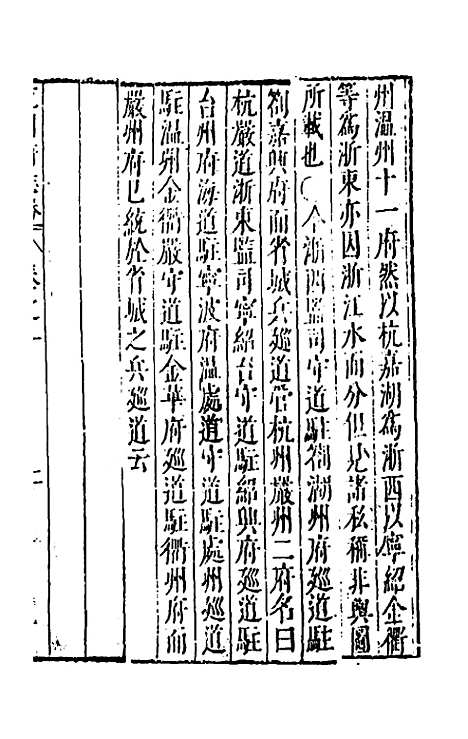 州溫州十一府然以杭嘉湖為浙西以寧紹金衢
等為浙東亦因浙江水而分但見諸私稱非輿圖
所載也○今浙西監司守道駐劄湖州府廵道駐
劄嘉興府而省城兵廵道管杭州嚴州二府名曰
杭嚴道浙東監司寧紹台守道駐紹興府廵道駐
台州府海道駐寧波府溫處道守道駐處州廵道
駐溫州金衢嚴守道駐金華府廵道駐衢州府而
嚴州府已統於省城之兵廵道云